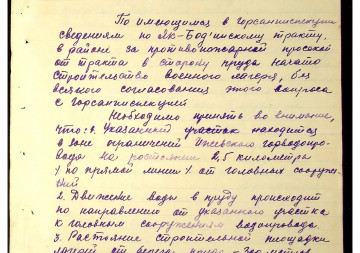 По имеющимся в горсанинспекции
сведениям по Яво-Бод'инскому тракту,
в районе за противопожарной просекой
от тракта в сторону пруда начато
строительство военного лагеря, без
всякого согласования этого вопроса
с горсанинспекцией
Необходимо принять во внимание,
что: 1. Указанный участок находится
в зоне ограничений Ижевского горводопро-
вода на ростоянии 2,5 километра
/ по прямой линии / от головных сооруже-
ний
2. Движение воды в пруду происходит
по направлению от указанного участка
к головным сооружениям водопровода.
3. Растояние строительной площадки
лагеря от берега пруда - 300 метров